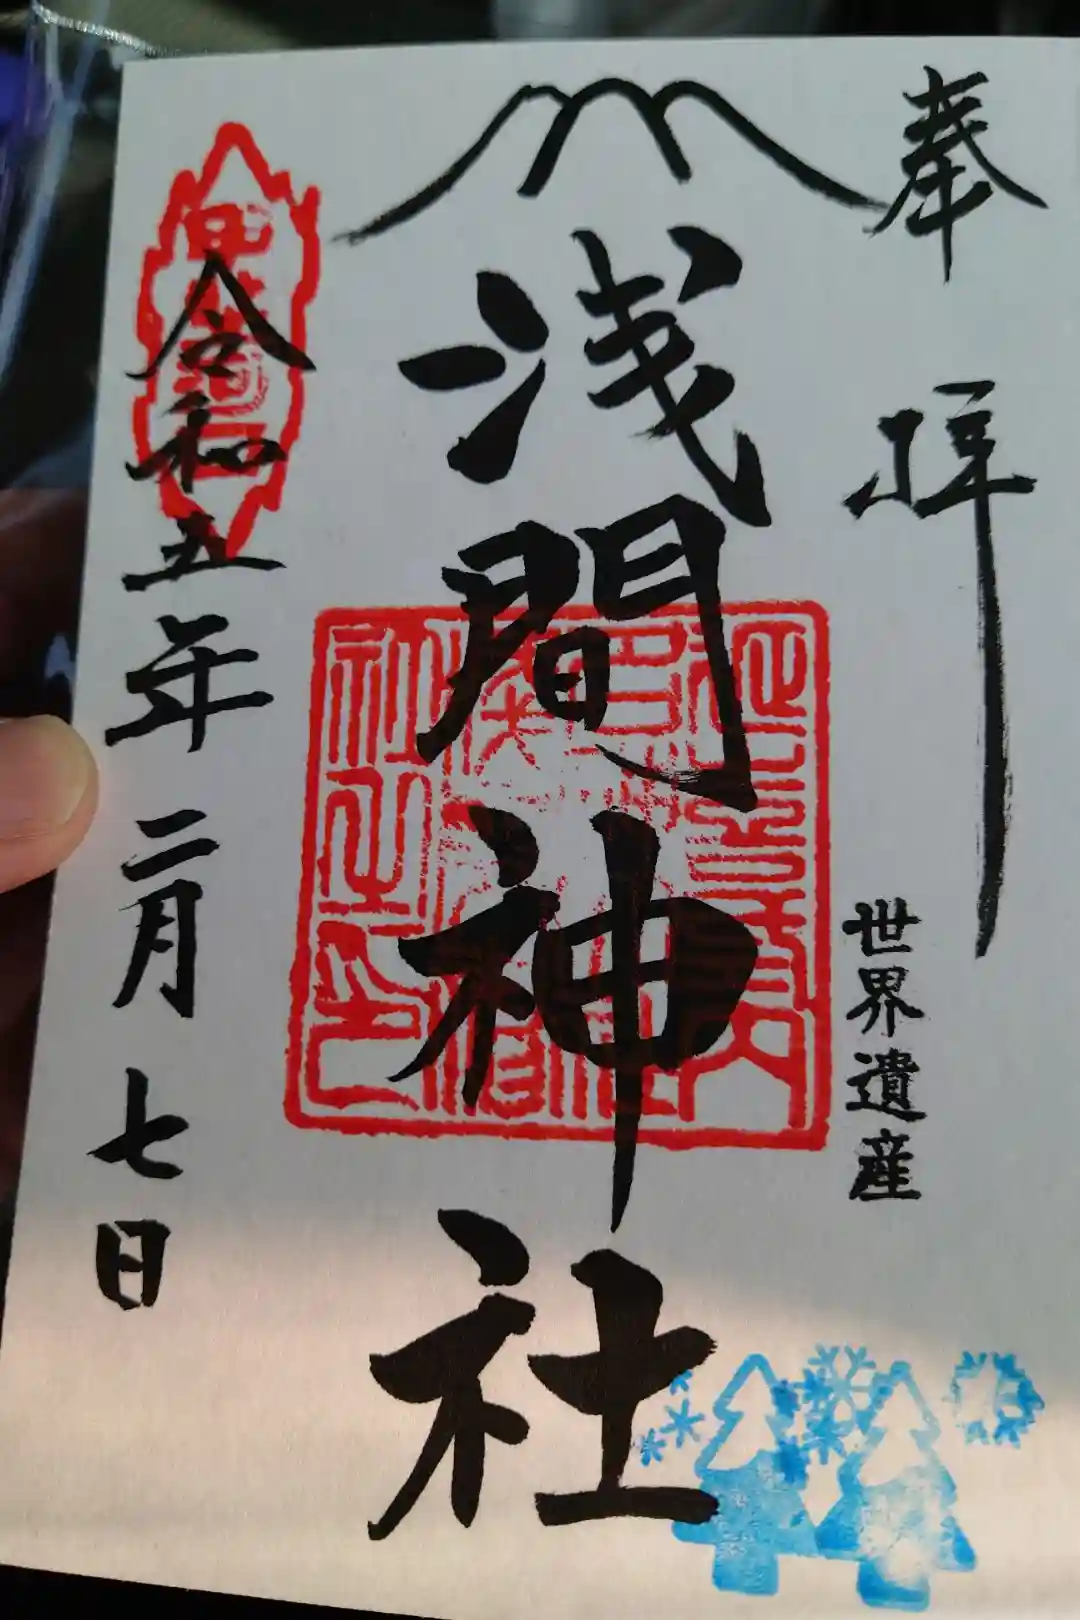 奉拝
世界遺産
浅間神社
令和五年二月七日